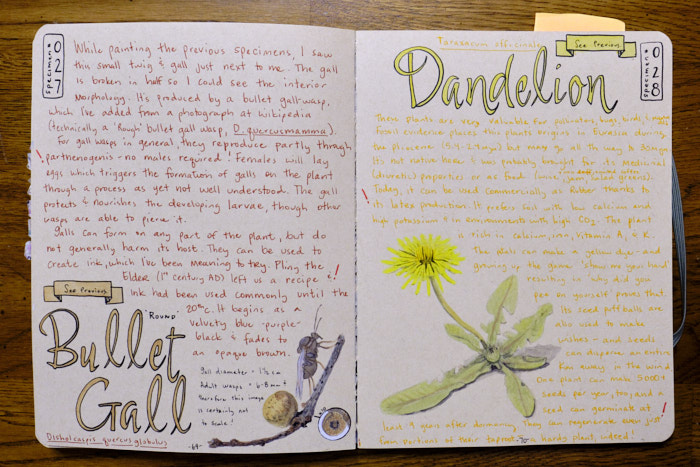 specimen#
027
While painting the previous specimens, I saw
this small twig & gall just next to me. The gall
is broken in half so I could see the interior
morphology. It's produced by a bullet gall wasp,
which I've added from a photograph at Wikipedia
(technically a 'Rough' bullet gall wasp, D. quercusmamma).
For gall wasps in general, they reproduce partly through
! parthenogenis - no males required! Females will lay
eggs which triggers the formation of galls on the plant
through a process as yet not well understood. The gall
protects & nourishes the developing larvae, though other
wasps are able to pierce it.
Galls can form on any part of the plant, but do
not generally harm its host. They can be used to
create ink, which I've been meaning to try. Pliny the
Elder (1st century AD) left us a recipe & !
Ink had been used commonly until the
20th c. It begins as a
velvety blue-purple-
black & fades to
an opaque brown.
See Previous
'Round'
Bullet
Gall
Disholcaspis quercus globulus
Gall diameter = 1½ cm
Adult wasps = 6-8 mm
therefore this image
is certainly not
to scale!
-69-
Taraxacum officinale
See Previous
specimen#
028
Dandelion
These plants are very valuable for pollinators, bugs, birds, &
Fossil evidence places this plants origins in Eurasia during
the pliocene (5.4-2.4mya) but may go all the way to 30mya
It's not native here & was probably brought for its medicinal
(diuretic) properties or as food (wine, jam, salad greens).
Today, it can be used commercially as rubber thanks to
! its latex production. It prefers soil with low calcium and
high potassium & in environments with high CO2. The plant
is rich in calcium, iron, vitamin A, & K.
The plant can make a yellow dye and
growing up the game 'show me your hand'
resulting in 'why did you
pee on yourself' proves that.
Its seed puffballs are
also used to make
wishes - and seeds
can disperse an entire
km away in the wind
One plant can make 5000+
seeds per year, too, and a
seed can germinate at !
least 9 years after dormancy. They can regenerate even just
from portions of their taproot - a hardy plant, indeed!
-70-